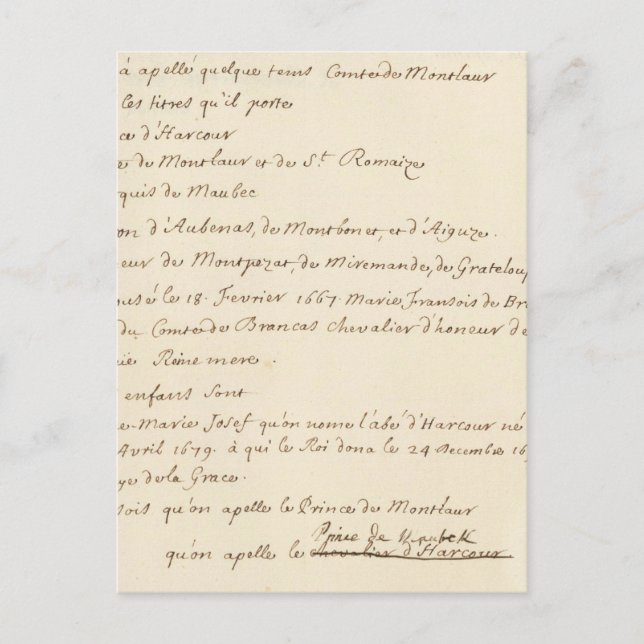 à apellé quelque tems Comte de Montlaur
les titres qu'il porte
ce d'Harcour
e de Montlaur et de S.t Romaize
quis de Maubec
on d'Aubenas, de Montbonet, et d'Aiguze.
eur de Montpezat, de Miremande, de Grateloup
ousé le 18. Fevrier 1667. Marie Fransois de Br
du Comte de Brancas chevalier d'honeur de
rie Reine mere.
enfans sont
e-Marie Josef qu'on nome l'abé d'Harcour né
Avril 1679. à qui le Roi dona le 24 Decembre 16
ye de la Grace.
sois qu'on apelle le Prince de Montlaur
Prince de Maubek
qu'on apelle le chevalier d'Harcour.